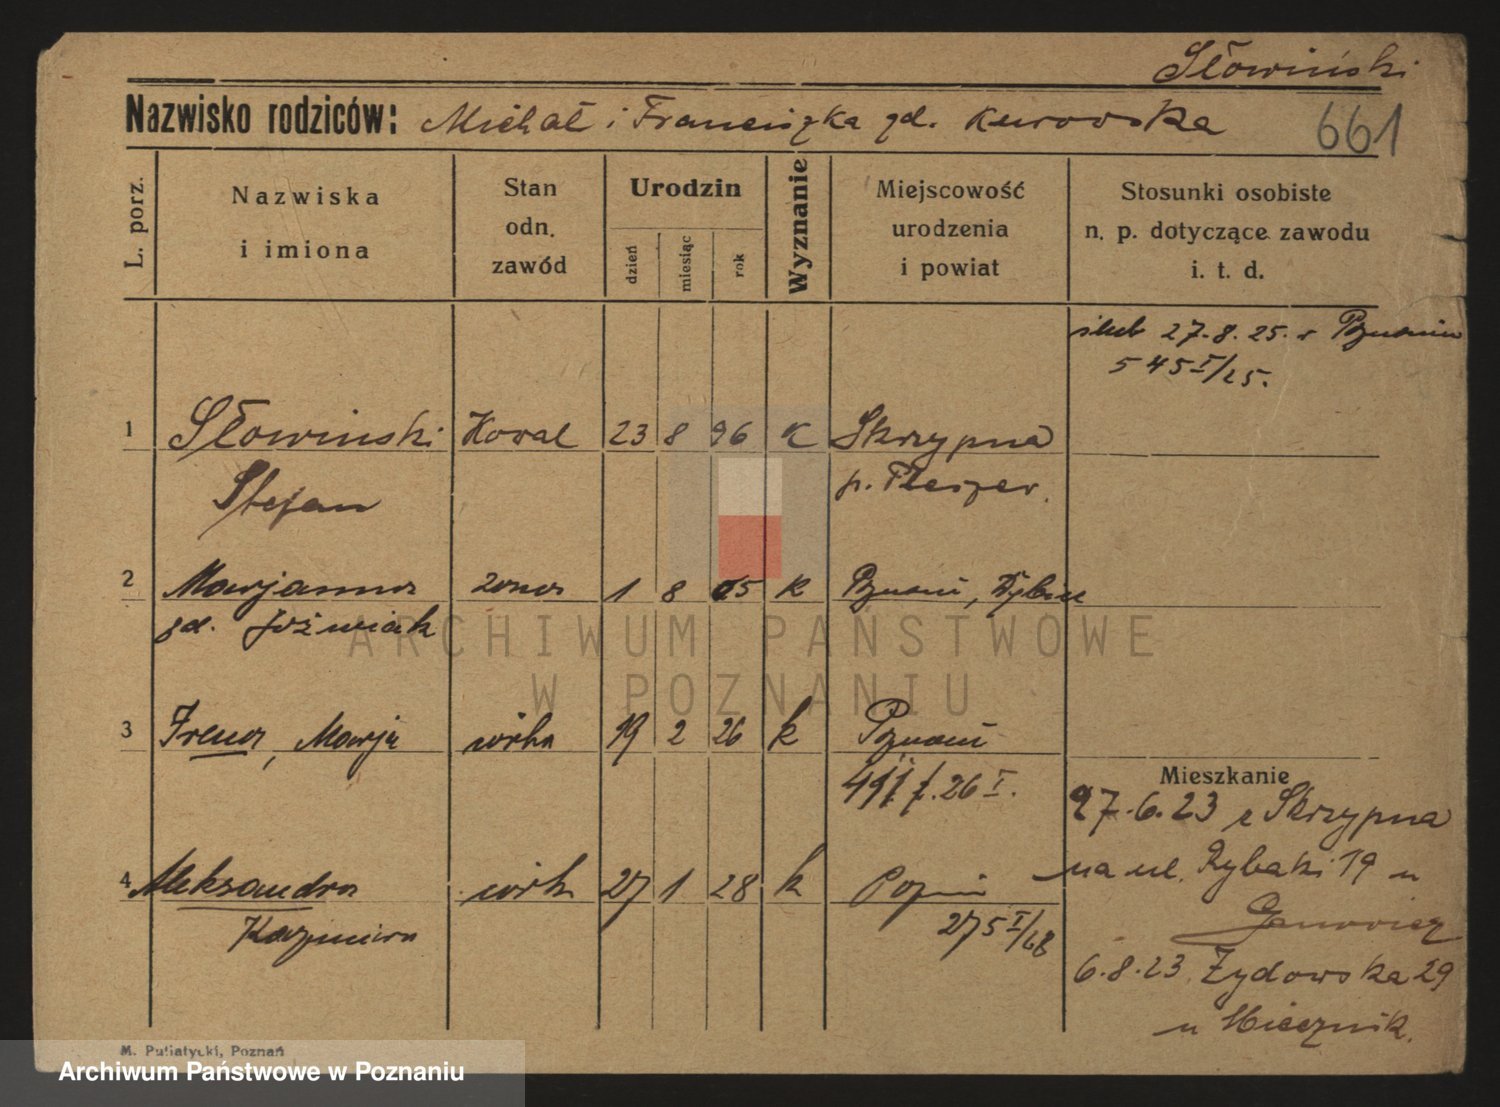 Słowiński
Nazwisko rodziców: Michał i Franciszka zd. Kurowska 661
L. porz.
Nazwiska i imiona
Stan odn. zawód
Urodzin
dzień miesiąc rok
Wyznanie
Miejscowość urodzenia i powiat
Stosunki osobiste n. p. dotyczące zawodu i. t. d.
ślub 27.8.25. w Poznaniu
545 I/25.
1 Słowiński Kowal 23 8 96 K Skrzypna
Stefan p. Pleszew.
2 Marjanna żona 1 8 05 k Poznań,
zd. Jóźwiak
3 Irena, Marja córka 19 2 26 k Poznań
26 I.
4 Aleksandra córk 27 1 28 k Pozn
Kazimiera 275 I/28
Mieszkanie
27.6.23 z Skrzypna
na ul. Rybaki 19 u
6.8.23. Żydowska 29
u Miecznik.
ARCHIWUM PAŃSTWOWE
W POZNANIU
M. Putiatycki, Poznań
Archiwum Państwowe w Poznaniu